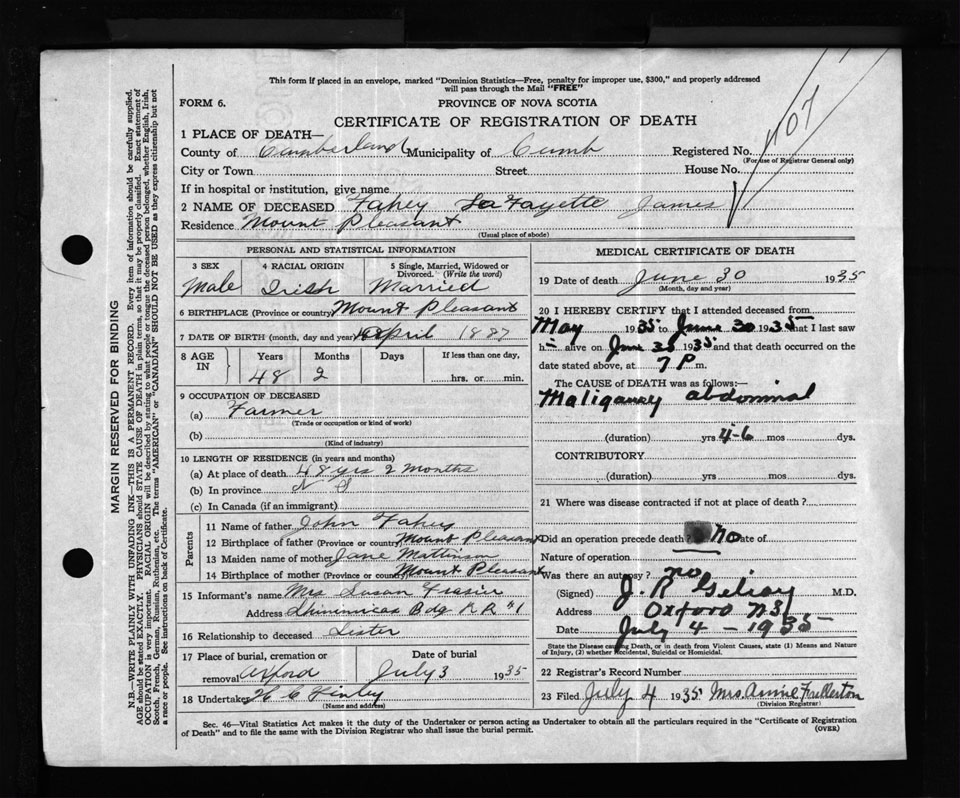 This form if placed in an envelope, marked "Dominion Statistics—Free, penalty for improper use, $300," and properly addressed
will pass through the Mail "FREE"
FORM 6.
PROVINCE OF NOVA SCOTIA
CERTIFICATE OF REGISTRATION OF DEATH
107
1 PLACE OF DEATH—
County of Cumberland Municipality of Cumb Registered No.
(For use of Registrar General only)
City or Town Street House No.
If in hospital or institution, give name
2 NAME OF DECEASED Fahey LaFayette James
Residence Mount Pleasant
(Usual place of abode)
PERSONAL AND STATISTICAL INFORMATION
3 SEX 4 RACIAL ORIGIN 5 Single, Married, Widowed or
Divorced. (Write the word)
Male Irish Married
6 BIRTHPLACE (Province or country) Mount Pleasant
7 DATE OF BIRTH (month, day and year) April 1887
8 AGE IN Years Months Days If less than one day,
48 2 hrs. or min.
9 OCCUPATION OF DECEASED
(a) Farmer
(Trade or occupation or kind of work)
(b)
(Kind of industry)
10 LENGTH OF RESIDENCE (in years and months)
(a) At place of death 48 yrs 2 months
(b) In province N S
(c) In Canada (if an immigrant)
Parents
11 Name of father John Fahey
12 Birthplace of father (Province or country) Mount Pleasant
13 Maiden name of mother Jane Mattinson
14 Birthplace of mother (Province or country) Mount Pleasant
15 Informant's name Mrs Susan Frasier
Address Shinimicas Bdg R R #1
16 Relationship to deceased Sister
17 Place of burial, cremation or Date of burial
removal Oxford July 3 1935
18 Undertaker H C Finley
(Name and address)
MEDICAL CERTIFICATE OF DEATH
19 Date of death June 30 1935
(Month, day and year)
20 I HEREBY CERTIFY that I attended deceased from
May 1935 to June 30 1935 that I last saw
h alive on June 1935 and that death occurred on the
date stated above, at 7 P m.
The CAUSE OF DEATH was as follows:—
Maligancy abdominal
(duration) yrs 4-6 mos dys.
CONTRIBUTORY
(duration) yrs mos dys.
21 Where was disease contracted if not at place of death?
Did an operation precede death? no Date of
Nature of operation
Was there an autopsy? no
(Signed) J. R. Gilroy M.D.
Address Oxford NS
Date July 4 – 1935
State the Disease causing Death, or in death from Violent Causes, state (1) Means and Nature
of Injury, (2) whether Accidental, Suicidal or Homicidal.
22 Registrar's Record Number
23 Filed July 4 1935 Mrs Annie Fullerton
(Division Registrar)
Sec. 46—Vital Statistics Act makes it the duty of the Undertaker or person acting as Undertaker to obtain all the particulars required in the "Certificate of Registration
of Death" and to file the same with the Division Registrar who shall issue the burial permit. (OVER)
MARGIN RESERVED FOR BINDING
N.B.—WRITE PLAINLY WITH UNFADING INK—THIS IS A PERMANENT RECORD. Every item of information should be carefully supplied.
AGE should be stated EXACTLY. PHYSICIANS should STATE CAUSE OF DEATH in plain terms, so that it may be properly classified. Exact statement of
OCCUPATION is very important. RACIAL ORIGIN will be described by stating to what people or tongue the deceased person belonged, whether English, Irish,
Scotch, French, German, Russian, Ruthenian, etc. The terms "AMERICAN" or "CANADIAN" SHOULD NOT BE USED as they express citizenship but not
a race or people. See instructions on back of Certificate.